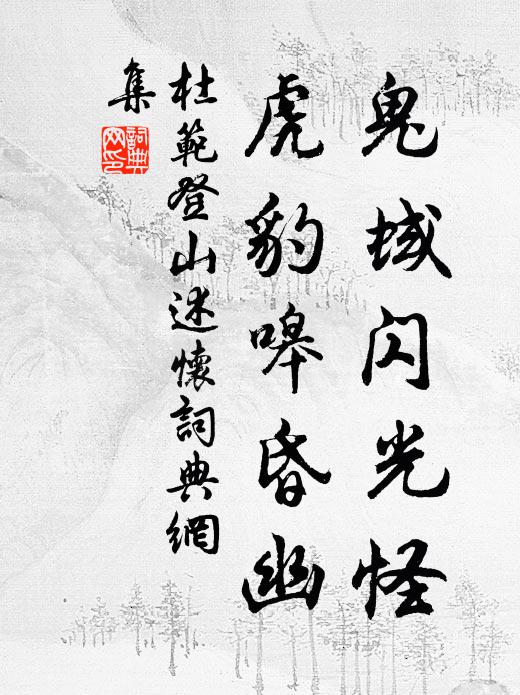 鬼域闪光怪
虎豹嗥昏幽
杜範登山述懷詞典網
集
詞典網印